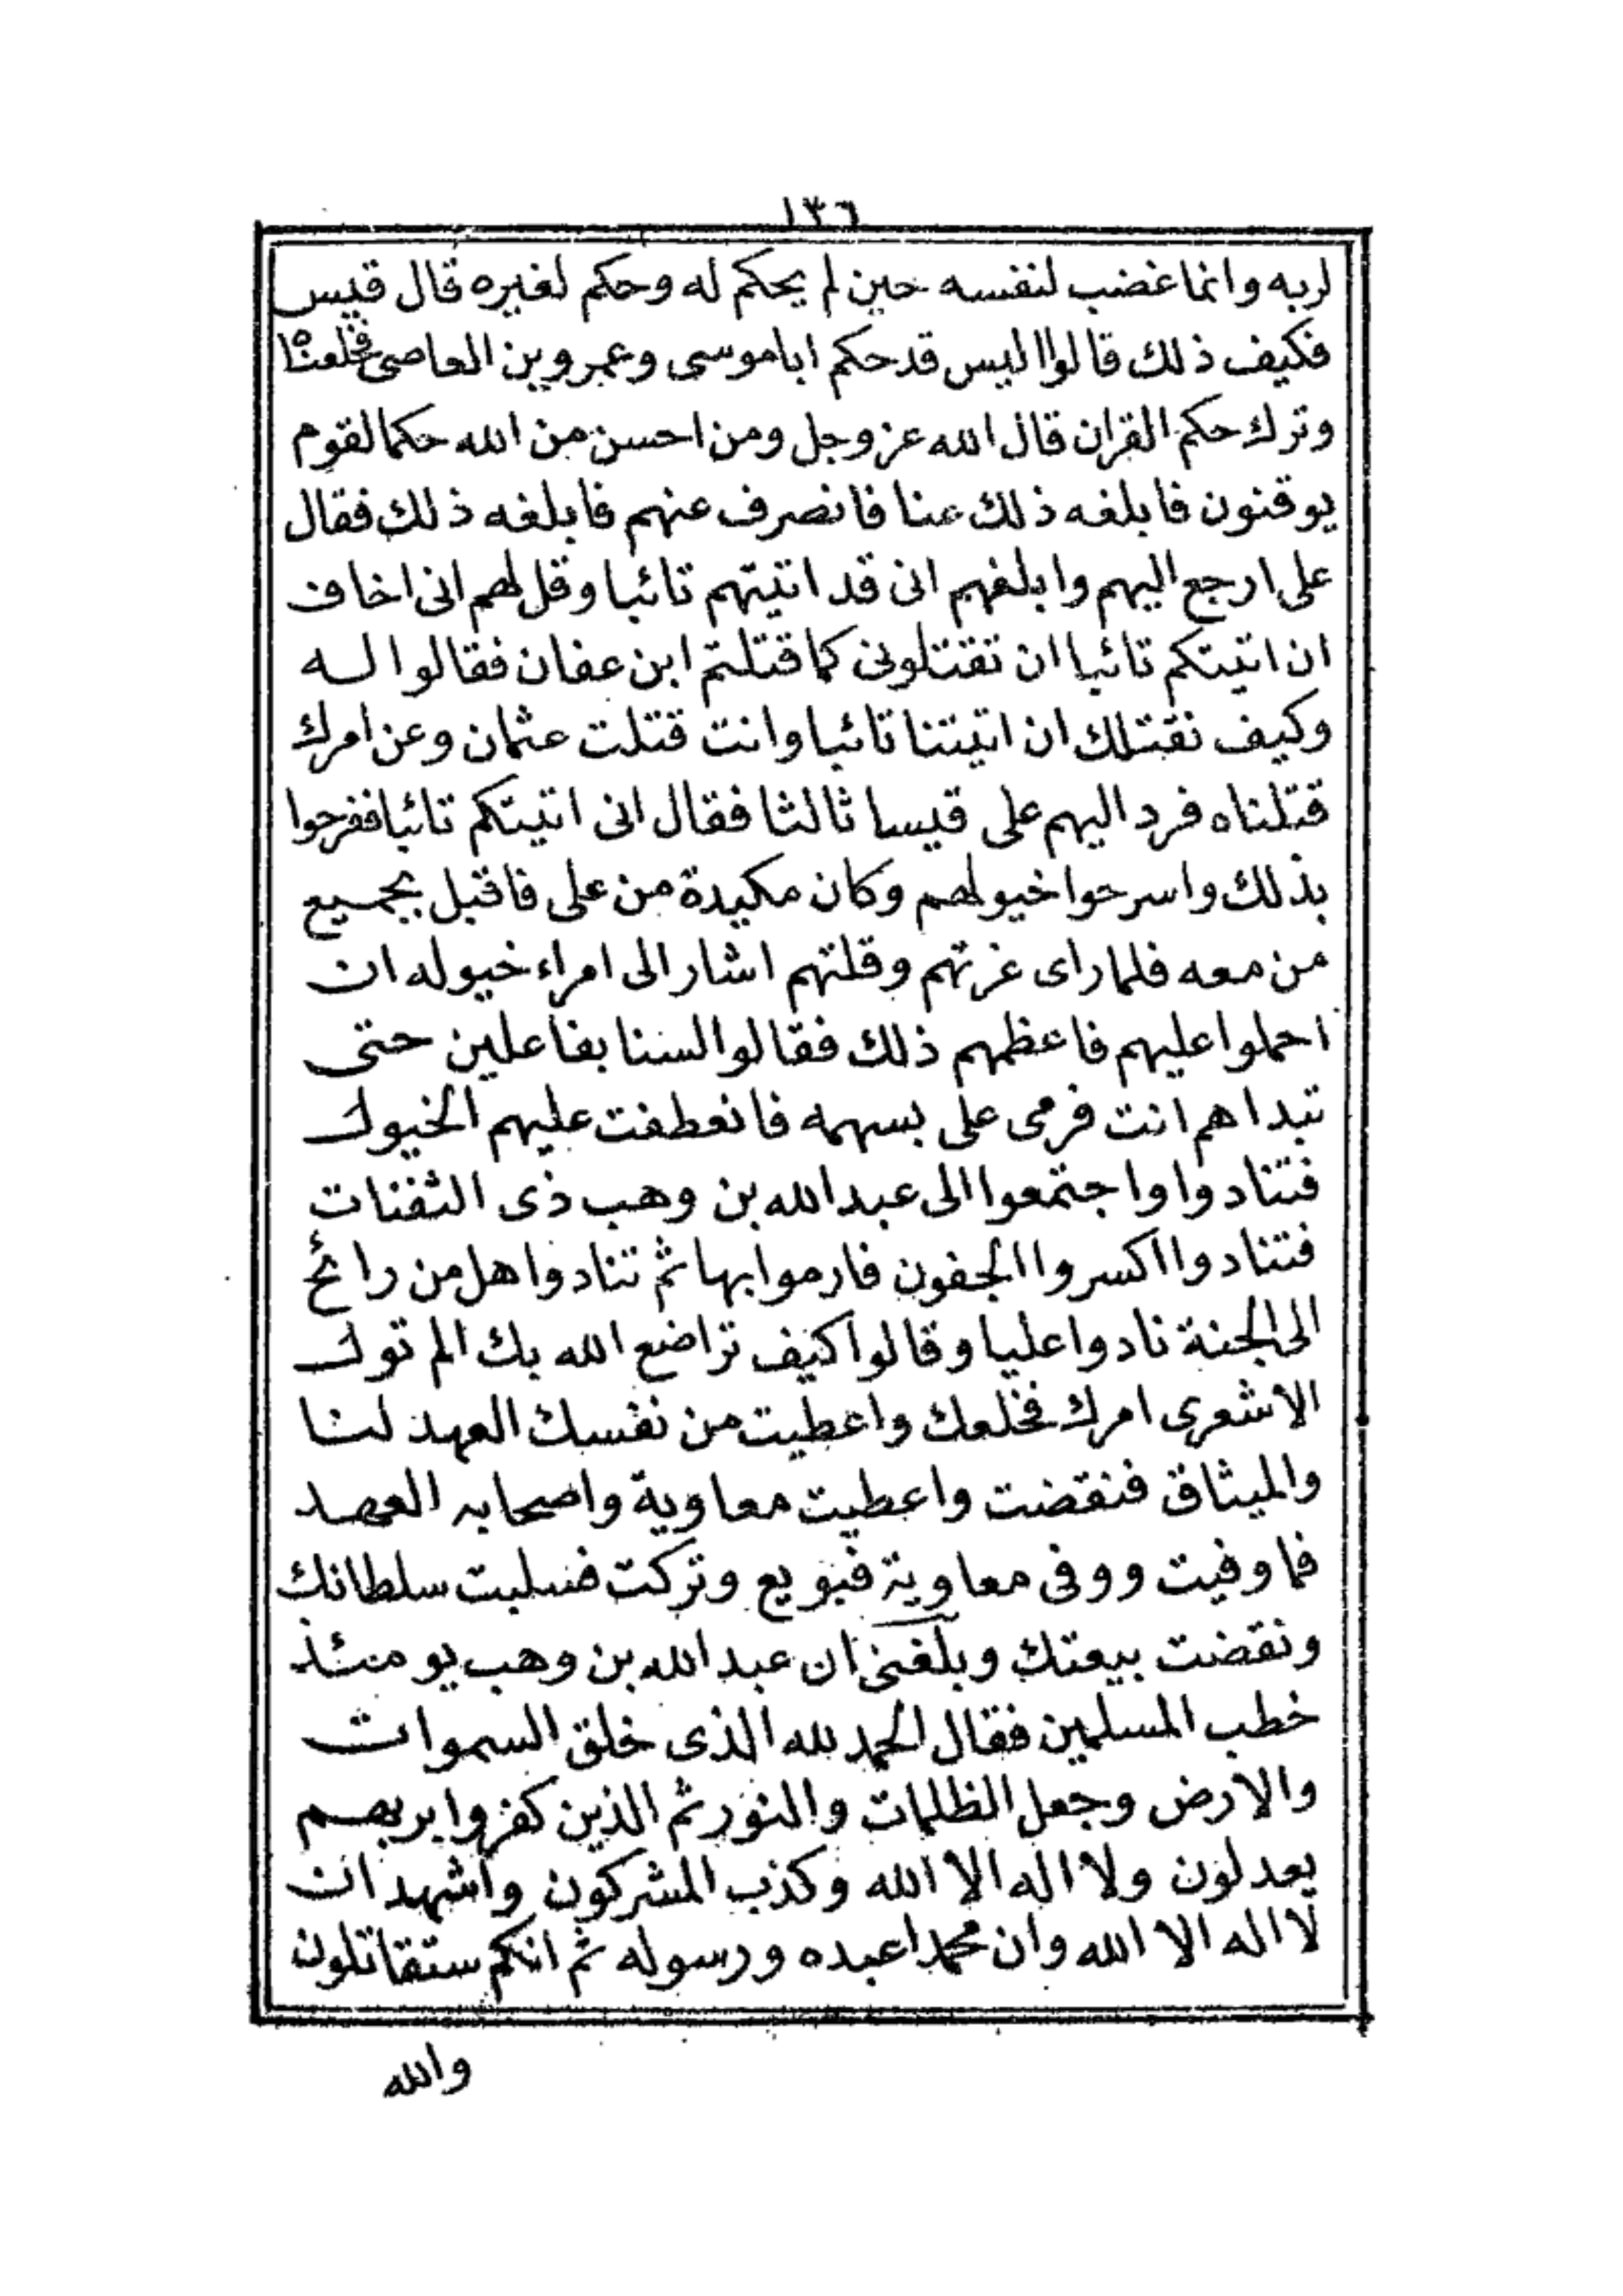 ١٣٦
لربه وانما غضب لنفسه حين لم يحكم له وحكم لغيره قال قيس
فكيف ذلك قالوا اليس قد حكم اباموسى وعمرو بن العاصى
وترك حكم القران قال الله عز وجل ومن احسن من الله حكما لقوم
يوقنون فابلغه ذلك عنا فانصرف عنهم فابلغه ذلك فقال
على ارجع اليهم وابلغهم انى قد اتيتهم تائبا وقل لهم انى اخاف
ان اتيتكم تائبا ان تقتلونى كما قتلتم ابن عفان فقالوا له
وكيف نقتلك ان اتيتنا تائبا وانت قتلت عثمان وعن امرك
قتلناه فرد اليهم على قيسا ثالثا فقال انى اتيتكم تائبا ففرحوا
بذلك واسرحوا خيولهم وكان مكيدة من على فاقبل بجميع
من معه فلما راى غرتهم وقلتهم اشار الى امراء خيوله ان
احملوا عليهم فاعظمهم ذلك فقالوا لسنا بفاعلين حتى
تبداهم انت فرمى على بسهمه فانعطفت عليهم الخيول
فتنادوا واجتمعوا الى عبد الله بن وهب ذى الثفنات
فتنادوا اكسروا الجفون فارموا بها ثم تنادوا هل من رائح
الى الجنة نادوا عليا وقالوا كيف تراضع الله بك الم تول
الاشعرى امرك فخلعك واعطيت من نفسك العهد لنا
والميثاق فنقضت واعطيت معاوية واصحابه العهد
فما وفيت ووفى معاوية فبويع وتركت فسلبت سلطانك
ونقضت بيعتك وبلغنى ان عبد الله بن وهب يومئذ
خطب المسلمين فقال الحمد لله الذى خلق السموات
والارض وجعل الظلمات والنور ثم الذين كفروا بربهم
يعدلون ولا اله الا الله وكذب المشركون واشهد ان
لا اله الا الله وان محمدا عبده ورسوله ثم انكم ستقاتلون
والله